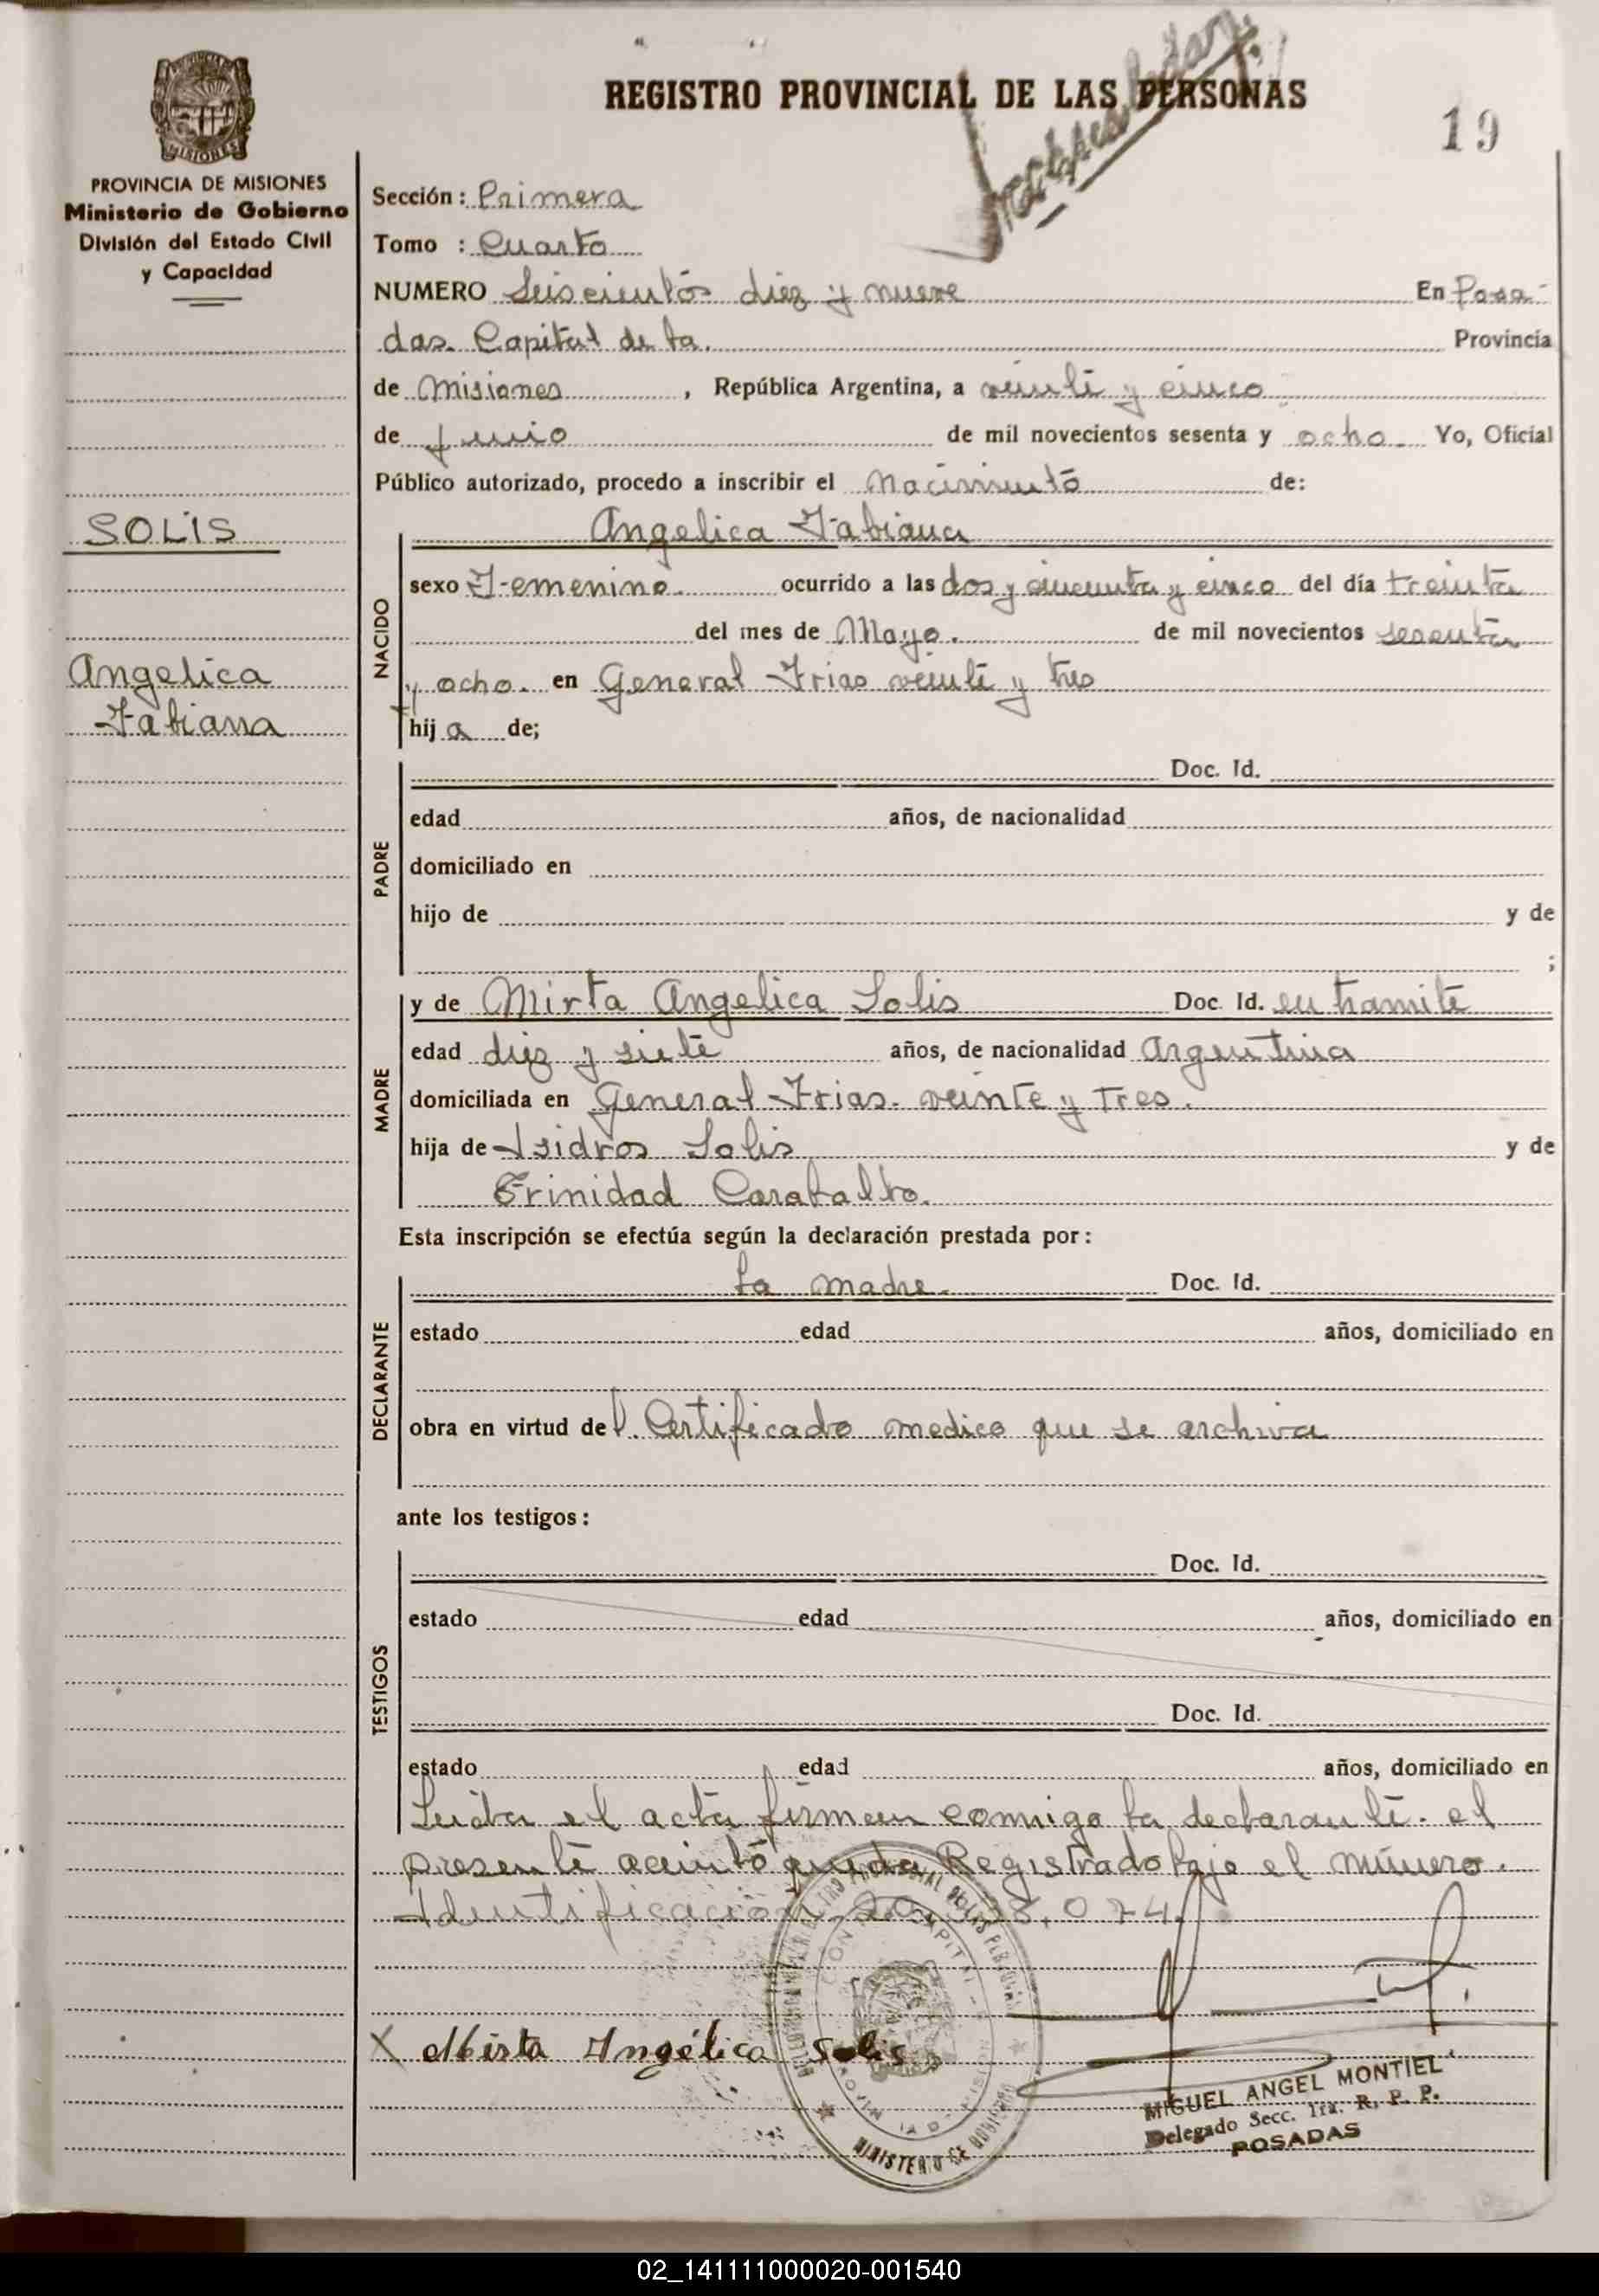 REGISTRO PROVINCIAL DE LAS PERSONAS
19
MISIONES
PROVINCIA DE MISIONES
Ministerio de Gobierno
División del Estado Civil
y Capacidad
SOLIS
Angelica
Fabiana
Sección: Primera
Tomo : Cuarto
NUMERO Seiscientos diez y nueve En Posa-
das. Capital de la. Provincia
de Misiones , República Argentina, a veinti y cinco
de Junio de mil novecientos sesenta y ocho. Yo, Oficial
Público autorizado, procedo a inscribir el Nacimiento de:
NACIDO
Angelica Fabiana
sexo Femenino. ocurrido a las dos y cincuenta y cinco del día treinta
del mes de Mayo. de mil novecientos sesenta
y ocho. en General Frias veinte y tres
hij a de;
PADRE
Doc. Id.
edad años, de nacionalidad
domiciliado en
hijo de y de
;
MADRE
y de Mirta Angelica Solis Doc. Id. en tramite
edad diez y siete años, de nacionalidad Argentina
domiciliada en General Frias. veinte y Tres.
hija de Isidros Solis y de
Trinidad Caraballo.
Esta inscripción se efectúa según la declaración prestada por:
DECLARANTE
la madre. Doc. Id.
estado edad años, domiciliado en
obra en virtud del. Certificado medico que se archiva
ante los testigos:
TESTIGOS
Doc. Id.
estado edad años, domiciliado en
Doc. Id.
estado edad años, domiciliado en
Leida el acta firman conmigo la declarante. el
presente queda Registrado bajo el número.
Identificación
X Mirta Angélica Solis
MINISTERIO DE GOBIERNO
MIGUEL ANGEL MONTIEL
Delegado Secc. 1ra. R. P. P.
POSADAS
02_141111000020-001540